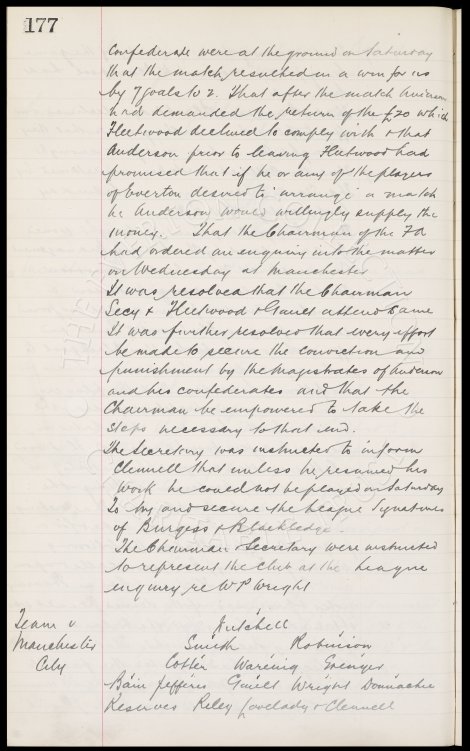 177
Confederate were at the ground on Saturday
that the match resulted in a win for us
by 7 goals to 2. That after the match Anderson
had demanded the return of the £20 which
Fleetwood declined to comply with & that
Anderson prior to leaving Fleetwood had
promised that if he or any of the players
of Everton desired to 'arrange' a match
he Anderson would willingly supply the
money. That the Chairman of the FA
had ordered an enquiry into the matter
on Wednesday at Manchester
It was resolved that the Chairman
Secy & Fleetwood & Gault attend same
It was further resolved that every effort
be made to secure the conviction and
punishment by the Magistrates of Anderson
and his confederates and that the
Chairman be empowered to take the
steps necessary to that end.
The Secretary was instructed to inform
Clennell that unless he resumed his
work he could not be played on Saturday
To try and secure the League Signatures
of Burgess & Blackledge.
The Chairman & Secretary were instructed
to represent the Club at the League
enquiry re W P Wright
Team v
Manchester
City
Mitchell
Smith Robinson
Cotter Wareing Grenyer
Bain Jefferis Gault Wright Donnachie
Reserves Riley Lovelady & Clennell